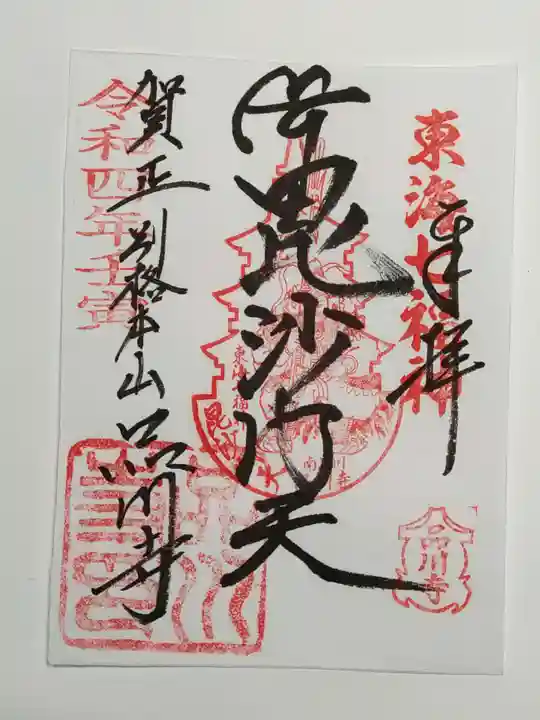 東海七福神
奉拝
毘沙門天
賀正 別格本山 品川寺
令和四年壬寅
品川寺